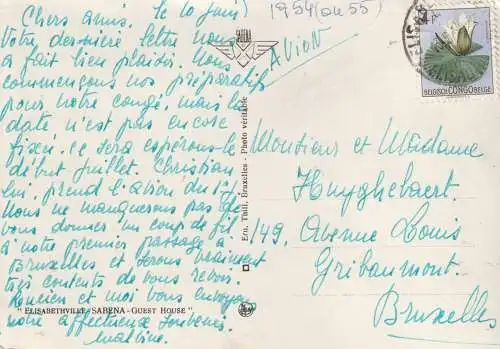 Chers amis. le 10 juin
Votre dernière lettre nous
a fait bien plaisir. Nous
commençons nos préparatifs
pour notre congé, mais la
date, n'est pas encore
fixée. Ce sera espérons-le
début Juillet. Christian
lui, prend l'avion du 17/
Nous ne manquerons pas de
vous donner un coup de fil
à notre premier passage à
Bruxelles et serons vraiment
très contents de vous revoir.
et moi vous envoyons
notre affectueux souvenir
1954 (ou 55)
AVION
BELGISCH CONGO BELGE
Ern. Thill, Bruxelles - Photo véritable
Monsieur et Madame
Huyghebaert.
149, Avenue Louis
Gribaumont.
Bruxelles
"ELISABETHVILLE - SABENA - GUEST HOUSE"